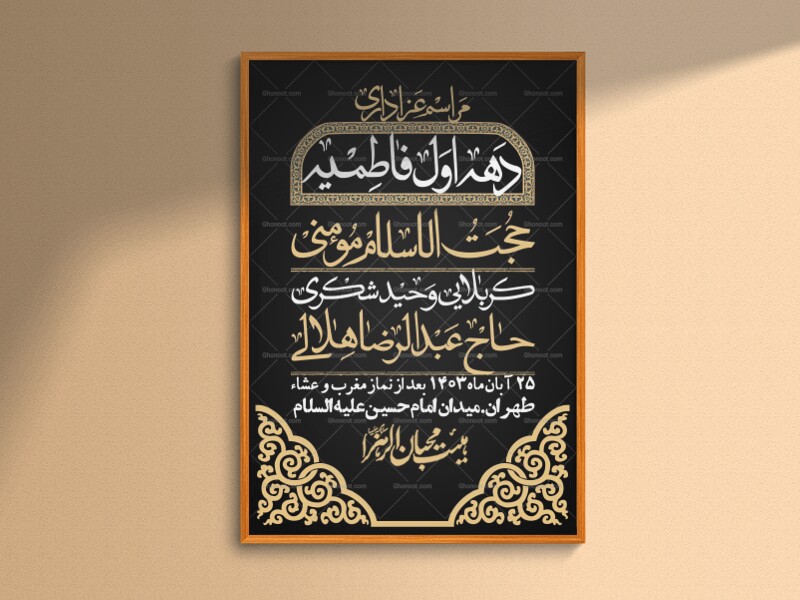 مراسم عزاداری
دهه اول فاطمیه
حجت الاسلام مؤمنی
کربلایی وحید شکری
حاج عبدالرضا هلالی
۲۵ آبان ماه ۱۴۰۳ بعد از نماز مغرب و عشاء
طهران.میدان امام حسین علیه السلام
هیئت محبان الزهرا
Ghonoot.com